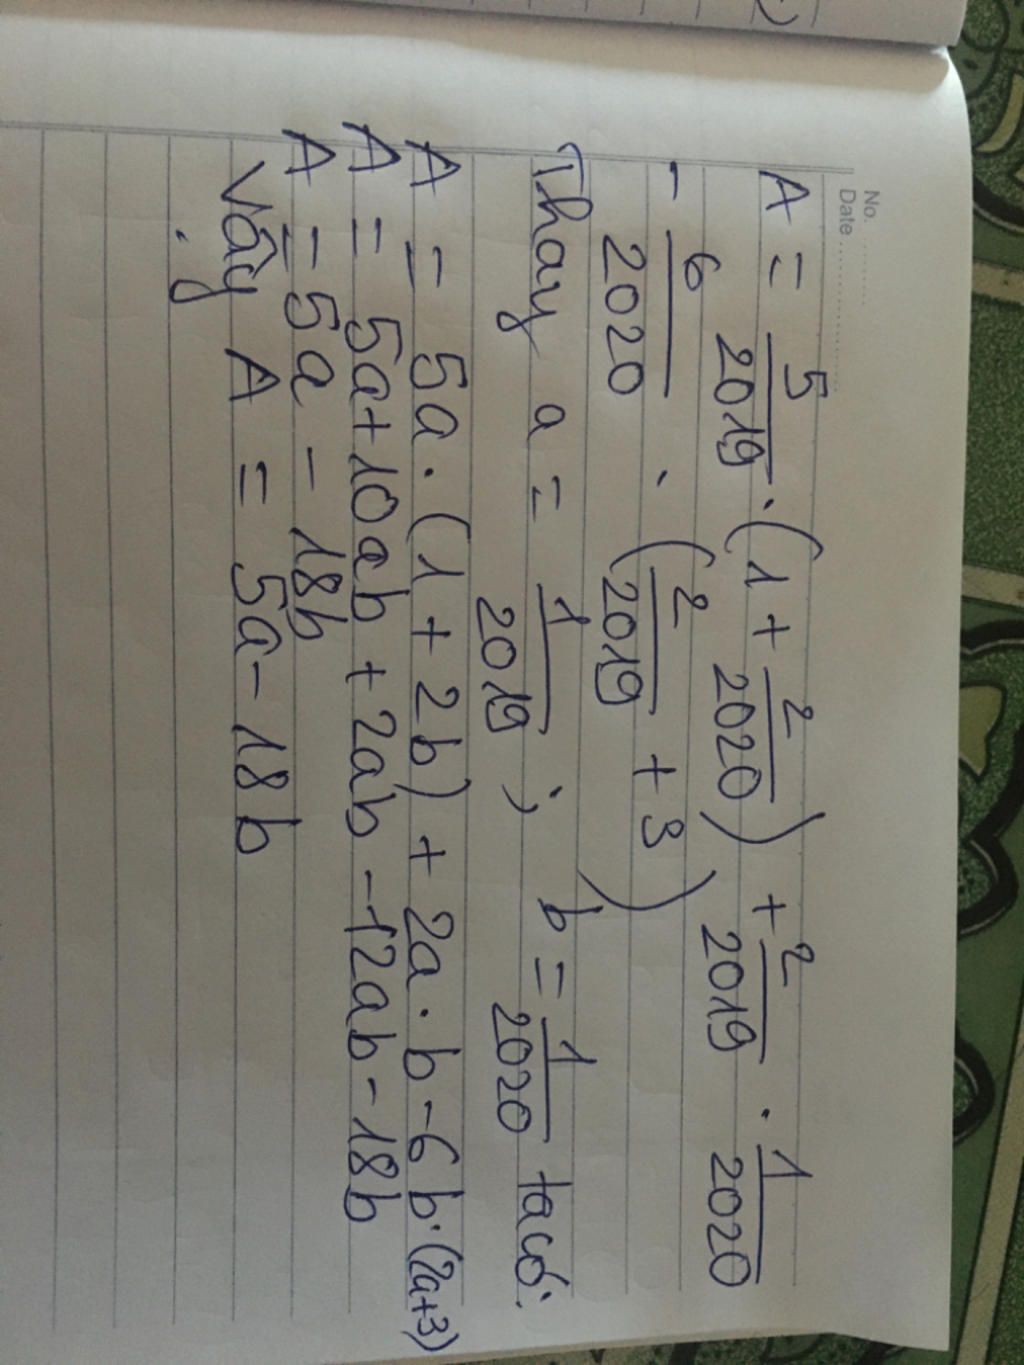 No.
Date
A = 5/2019 . (1 + 2/2020) + 2/2019 . 1/2020
- 6/2020 . (2/2019 + 3)
Thay a = 1/2019 ; b = 1/2020 ta có:
A = 5a . (1 + 2b) + 2a . b - 6b . (2a+3)
A = 5a + 10ab + 2ab - 12ab - 18b
A = 5a - 18b
Vậy A = 5a - 18b